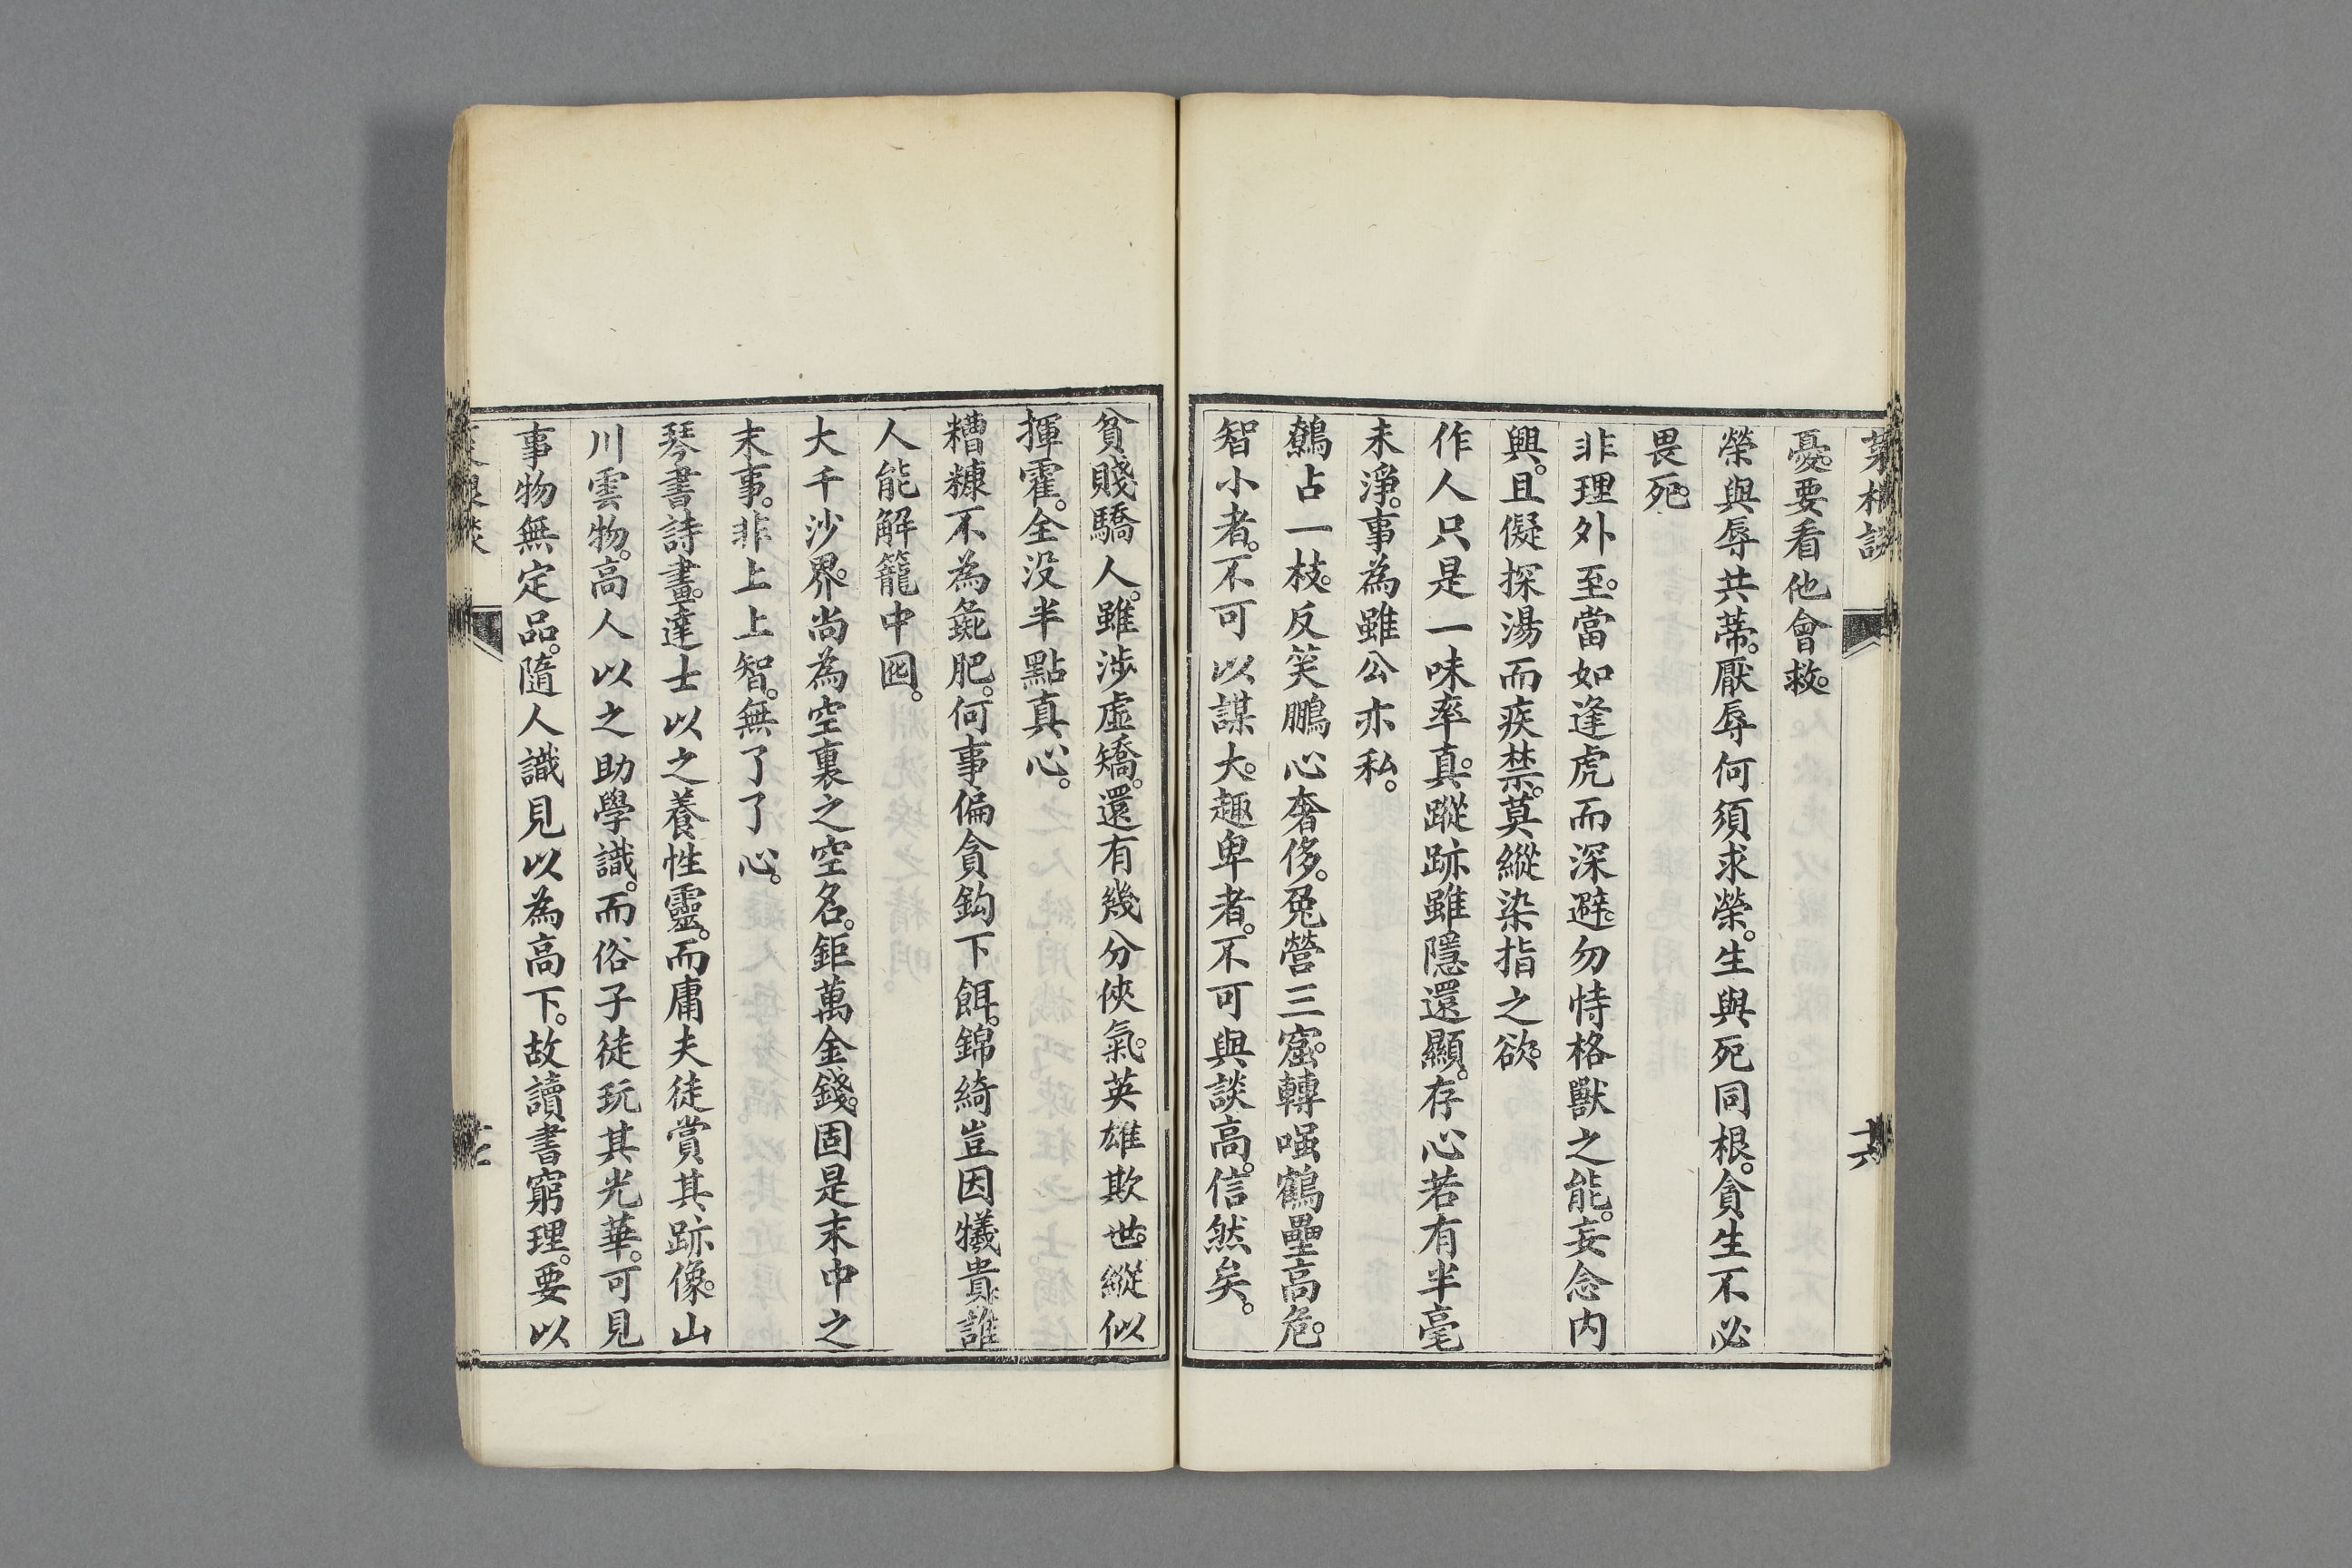 菜根談
十六
憂。要看他會救。
榮與辱共蒂。厭辱何須求榮。生與死同根。貪生不必
畏死。
非理外至。當如逢虎而深避。勿恃格獸之能。妄念内
興。且儗探湯而疾禁。莫縱染指之欲。
作人只是一味率真。蹤跡雖隱還顯。存心若有半毫
未淨。事為雖公亦私。
鷯占一枝。反笑鵬心奢侈。兔營三窟。轉嗤鶴壘高危。
智小者。不可以謀大。趣卑者。不可與談高。信然矣。
貧賤驕人。雖涉虛矯。還有幾分俠氣。英雄欺世。縱似
揮霍。全没半點真心。
糟糠不為彘肥。何事偏貪鈎下餌。錦綺豈因犧貴。誰
人能解籠中囮。
大千沙界。尚為空裏之空名。鉅萬金錢。固是末中之
末事。非上上智。無了了心。
琴書詩畫。達士以之養性靈。而庸夫徒賞其跡像。山
川雲物。高人以之助學識。而俗子徒玩其光華。可見
事物無定品。隨人識見以為高下。故讀書窮理。要以
根談